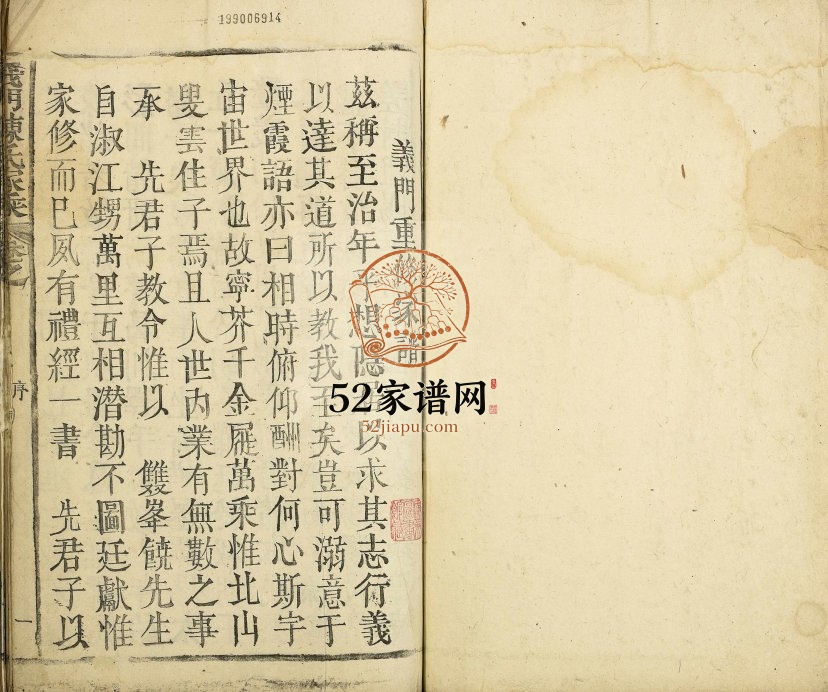 199006914
義門重修家譜
茲稱至治年予想隱居以求其志行義
以達其道所以教我至矣豈可溺意于
煙霞語亦曰相時俯仰酬對何心斯宇
宙世界也故寧芥千金屣萬乘惟北山
叟雲住子焉且人世內業有無數之事
承 先君子教令惟以 雙峯饒先生
自淑江甥萬里互相潛勘不圖廷獻惟
家修而已夙有禮經一書 先君子以
義門陳氏家乘
序
一
52家谱网
52jiapu.com